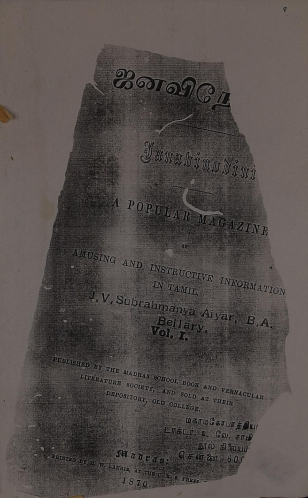 ஜனவிநே
Janabinodini
A POPULAR MAGAZINE
OF
AMUSING AND INSTRUCTIVE INFORMATION
IN TAMIL.
J.V. Subrahmanya Aiyar, B.A.
Bellary.
Vol. I.
PUBLISHED BY THE MADRAS SCHOOL BOOK AND VERNACULAR
LITERATURE SOCIETY, AND SOLD AT THEIR
DEPOSITORY, OLD COLLEGE.
டாக்டர் உ. வே. சாமி
நூல் நிலைய
Madras: சென்னை
PRINTED BY
1870